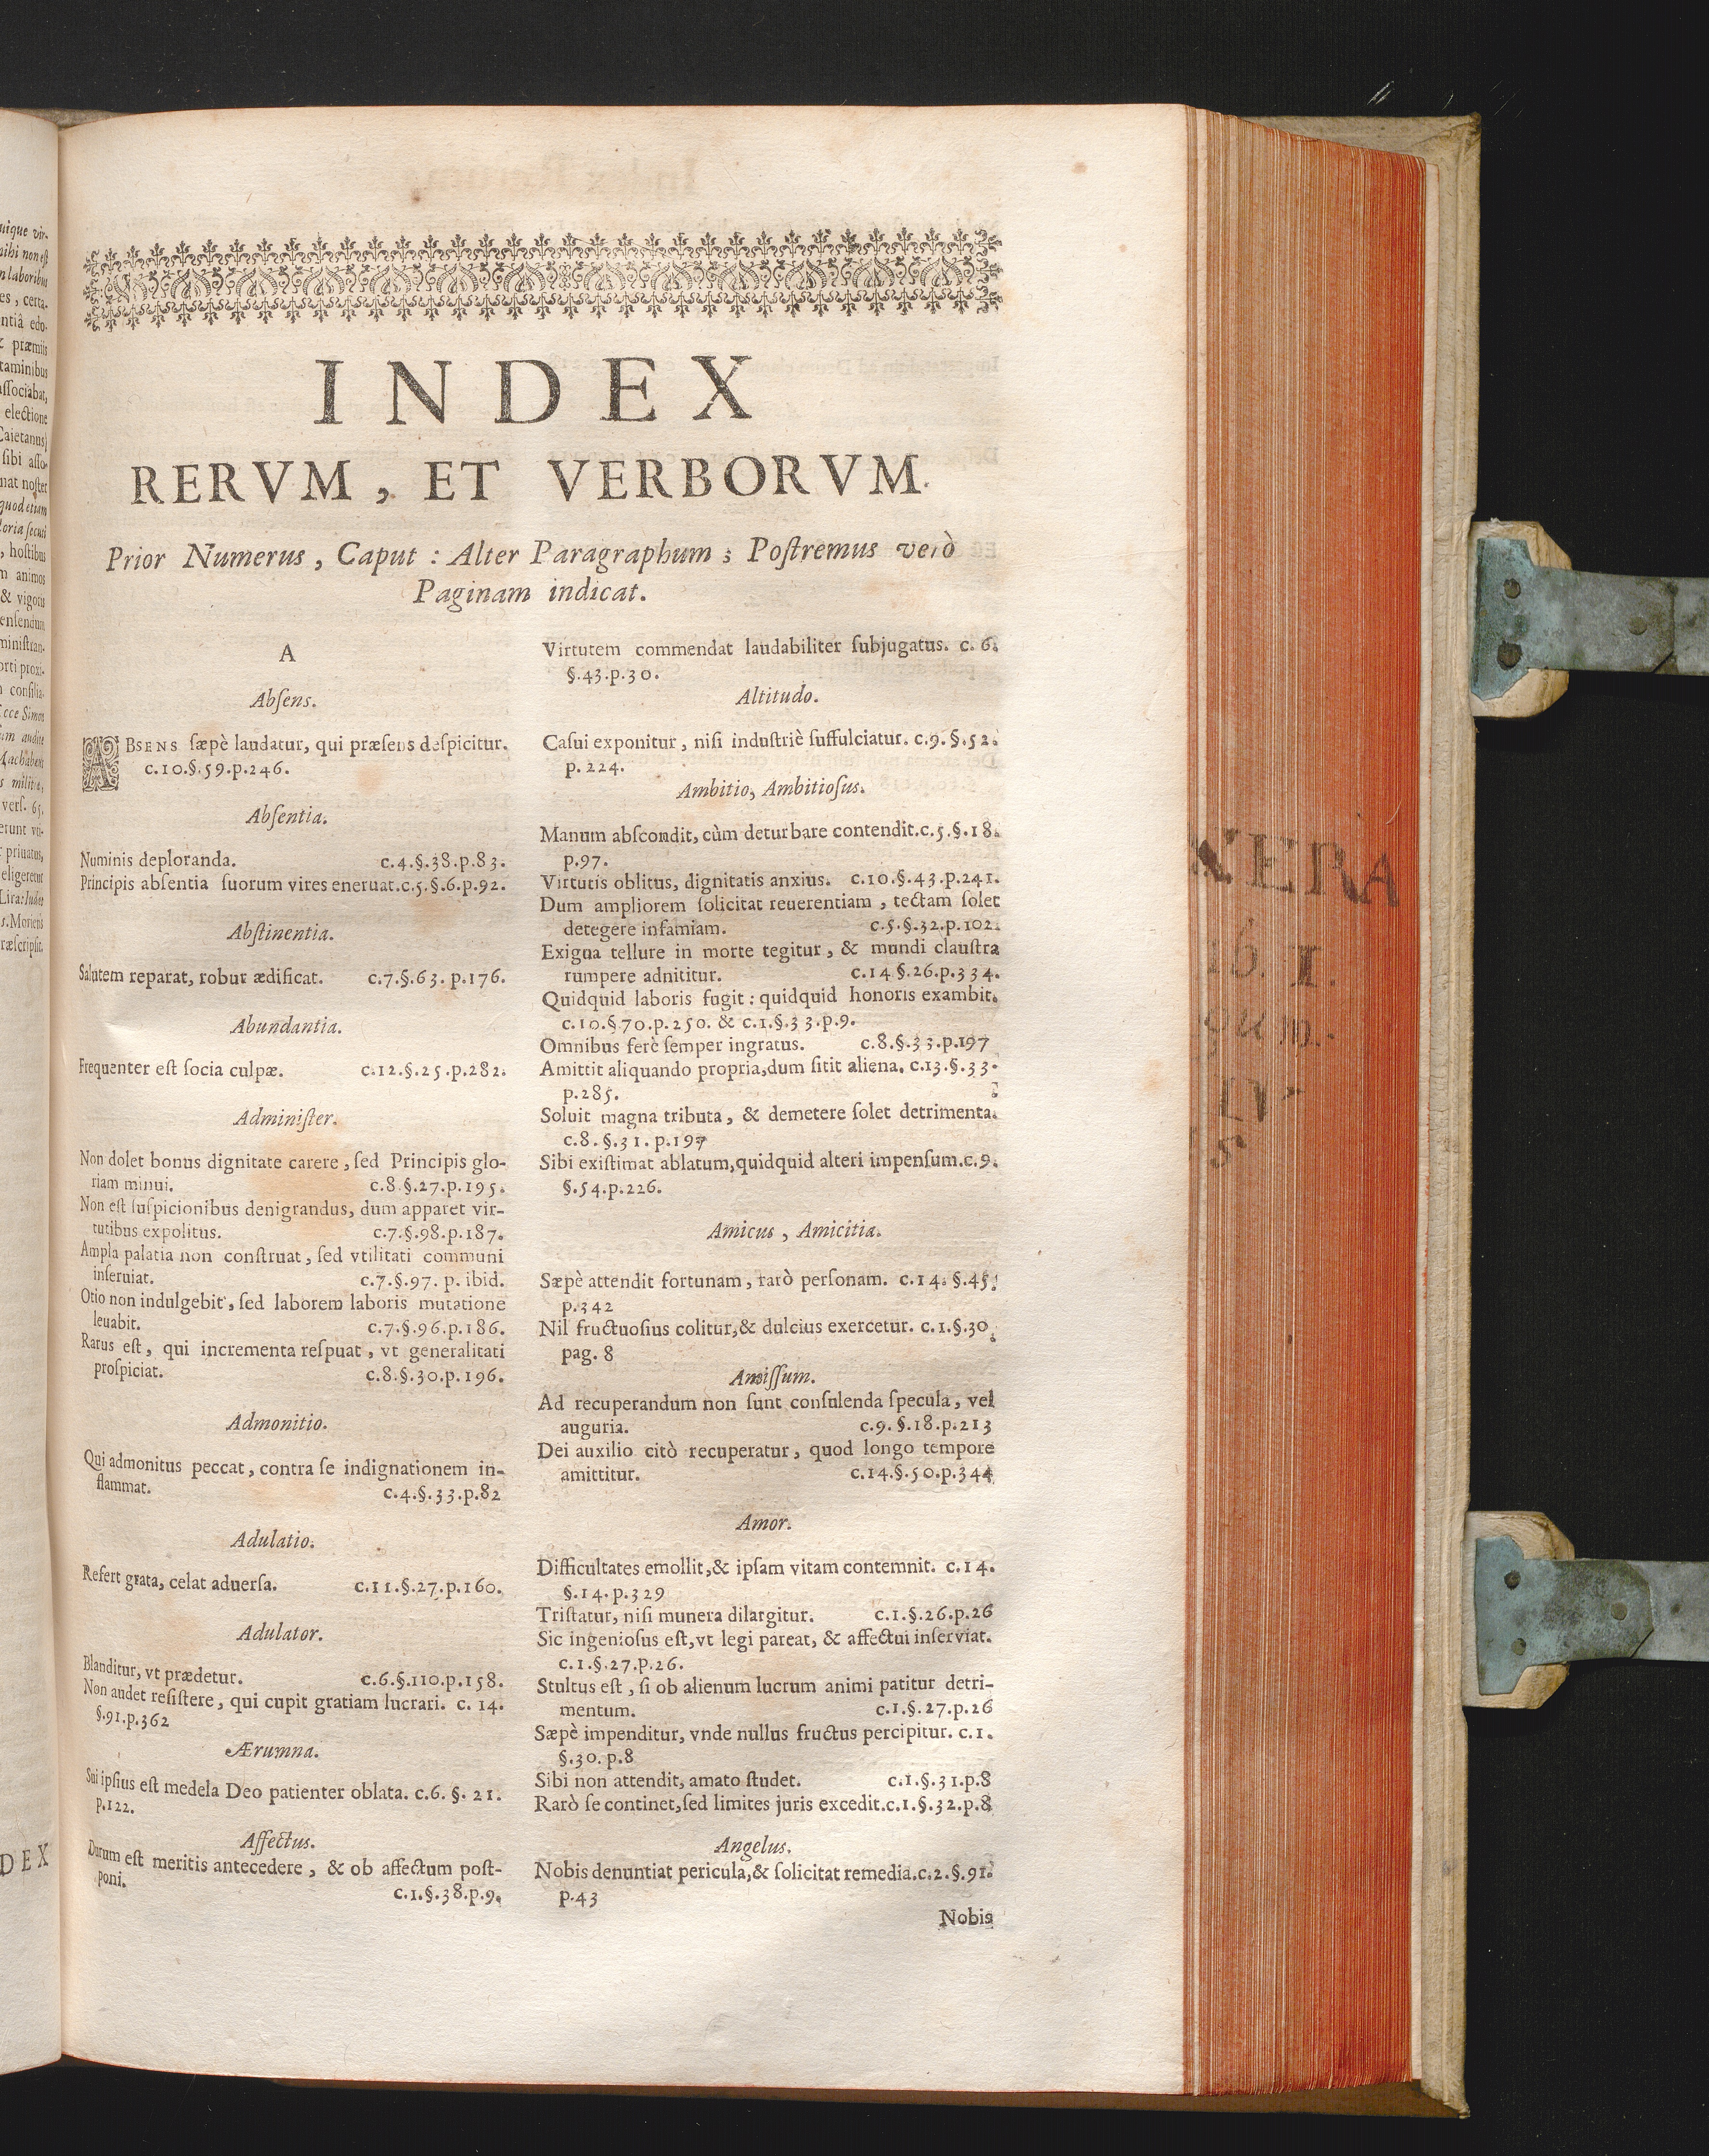 INDEX
RERVM, ET VERBORVM.
Prior Numerus, Caput : Alter Paragraphum ; Postremus verò
Paginam indicat.
A
Absens.
ABSENS sæpè laudatur, qui præsens despicitur.
c.10.§.59.p.246.
Absentia.
Numinis deploranda. c.4.§.38.p.83.
Principis absentia suorum vires eneruat.c.5.§.6.p.92.
Abstinentia.
Salutem reparat, robur ædificat. c.7.§.63.p.176.
Abundantia.
Frequenter est socia culpæ. c.12.§.25.p.282.
Administer.
Non dolet bonus dignitate carere, sed Principis glo-
riam minui. c.8.§.27.p.195.
Non est suspicionibus denigrandus, dum apparet vir-
tutibus expolitus. c.7.§.98.p.187.
Ampla palatia non construat, sed vtilitati communi
inseruiat. c.7.§.97. p. ibid.
Otio non indulgebit, sed laborem laboris mutatione
leuabit. c.7.§.96.p.186.
Rarus est, qui incrementa respuat, vt generalitati
prospiciat. c.8.§.30.p.196.
Admonitio.
Qui admonitus peccat, contra se indignationem in-
flammat. c.4.§.33.p.82
Adulatio.
Refert grata, celat aduersa. c.11.§.27.p.160.
Adulator.
Blanditur, vt prædetur. c.6.§.110.p.158.
Non audet resistere, qui cupit gratiam lucrari. c. 14.
§.91.p.362
Ærumna.
Sui ipsius est medela Deo patienter oblata. c.6. §. 21.
p.122.
Affectus.
Durum est meritis antecedere, & ob affectum post-
poni. c.1.§.38.p.9.
Virtutem commendat laudabiliter subjugatus. c. 6.
§.43.p.30.
Altitudo.
Casui exponitur, nisi industriè suffulciatur. c.9.§.52.
p. 224.
Ambitio, Ambitiosus.
Manum abscondit, cùm deturbare contendit.c.5.§.18.
p.97.
Virtutis oblitus, dignitatis anxius. c.10.§.43.p.241.
Dum ampliorem solicitat reuerentiam, tectam solet
detegere infamiam. c.5.§.32.p.102.
Exigua tellure in morte tegitur, & mundi claustra
rumpere adnititur. c.14.§.26.p.334.
Quidquid laboris fugit : quidquid honoris exambit.
c.10.§.70.p.250. & c.1.§.33.p.9.
Omnibus ferè semper ingratus. c.8.§.33.p.197
Amittit aliquando propria, dum sitit aliena. c.13.§.33.
p.285.
Soluit magna tributa, & demetere solet detrimenta.
c.8.§.31.p.197
Sibi existimat ablatum, quidquid alteri impensum.c.9.
§.54.p.226.
Amicus, Amicitia.
Sæpè attendit fortunam, rarò personam. c.14. §.45.
p.342
Nil fructuosius colitur, & dulcius exercetur. c.1.§.30.
pag. 8
Amissum.
Ad recuperandum non sunt consulenda specula, vel
auguria. c.9.§.18.p.213
Dei auxilio citò recuperatur, quod longo tempore
amittitur. c.14.§.50.p.344
Amor.
Difficultates emollit, & ipsam vitam contemnit. c.14.
§.14.p.329
Tristatur, nisi munera dilargitur. c.1.§.26.p.26
Sic ingeniosus est, vt legi pareat, & affectui inserviat.
c.1.§.27.p.26.
Stultus est, si ob alienum lucrum animi patitur detri-
mentum. c.1.§.27.p.26
Sæpè impenditur, vnde nullus fructus percipitur. c.1.
§.30.p.8
Sibi non attendit, amato studet. c.1.§.31.p.8
Rarò se continet, sed limites juris excedit.c.1.§.32.p.8
Angelus.
Nobis denuntiat pericula, & solicitat remedia.c.2.§.91.
p.43
Nobis